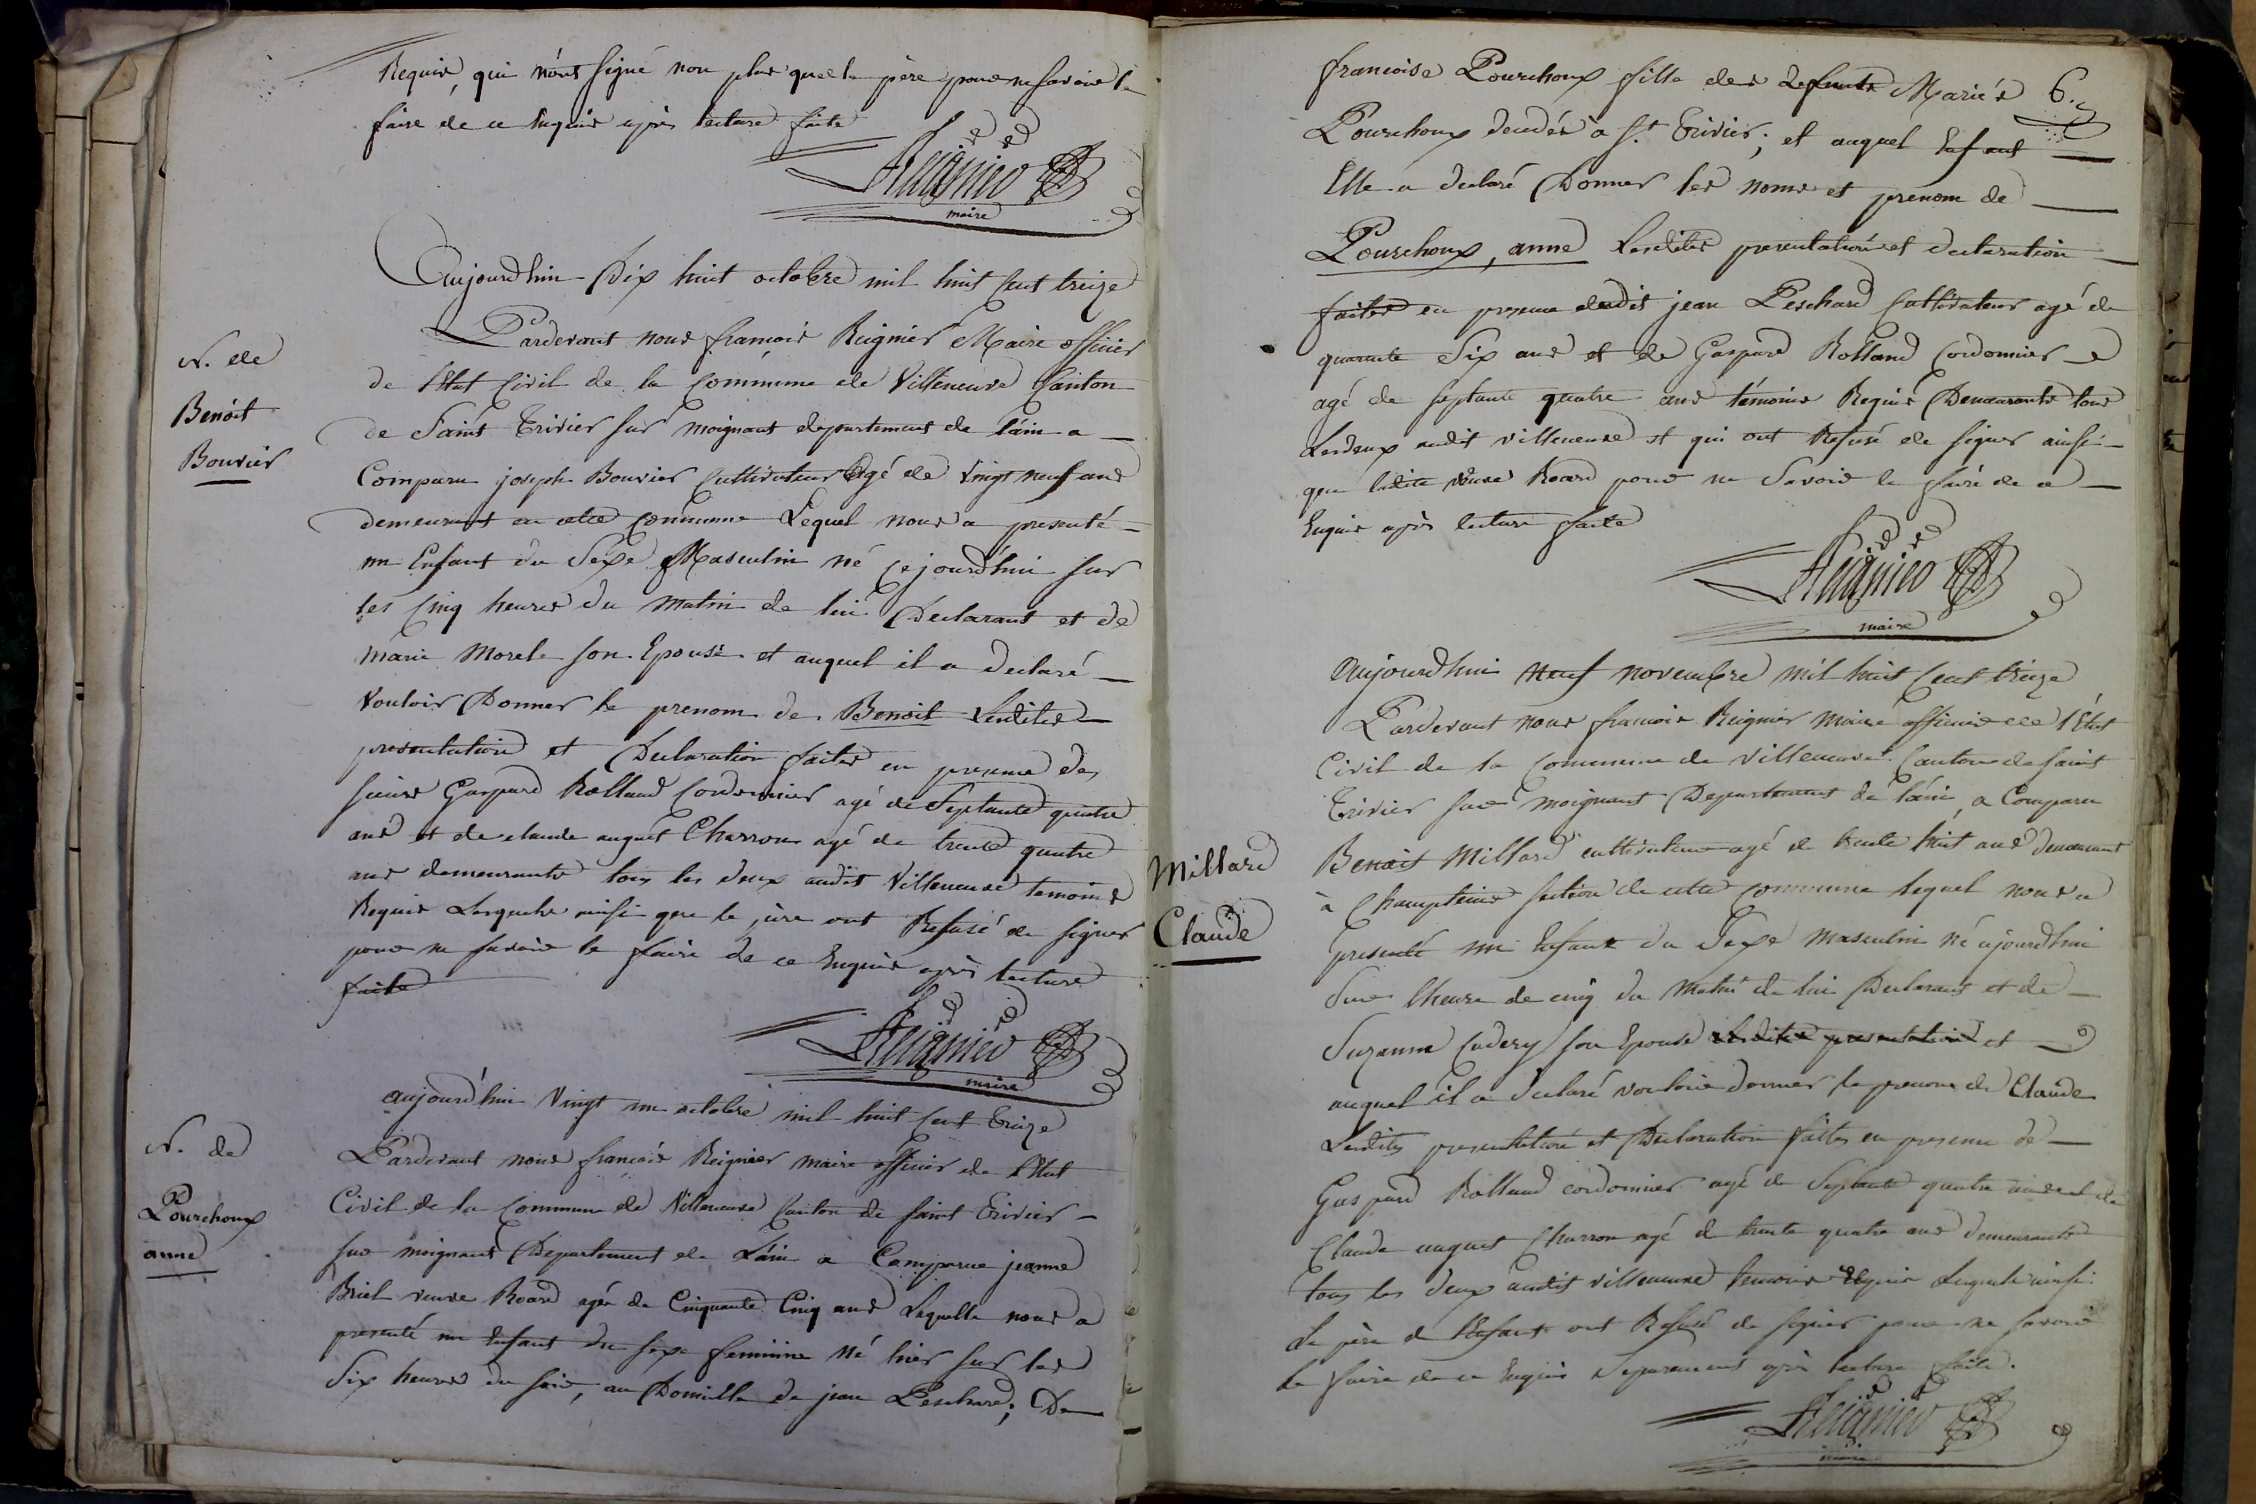 Requis, qui n'ont signé non plus que le père pour ne savoir le
faire de ce Enquis après lecture faite
Reignier
maire
Aujourdhui Dix huit octobre mil huit Cent treize
Pardevant nous françois Reignier Maire officier
de l'Etat Civil de la Commune de Villeneuve Canton
de Saint Trivier sur moignant departement de l'ain a
Comparu joseph Bouvier Cultivateur agé de vingt neuf ans
demeurant en cette Commune Lequel nous a presenté
un Enfant du Sexe Masculin né Cejourd'hui sur
les Cinq heures du matin de lui Declarant et de
marie Morel son Epouse et auquel il a declaré
Vouloir Donner le prenom de Benoit Lesdites
presentation et Declaration faites en presence des
sieurs Gaspard Rolland Cordonnier agé de Septante quatre
ans et de claude auguet Charron agé de trente quatre
ans demeurants tous les deux audit Villeneuve temoins
Requis Lesquels ainsi que le père ont Refusé de signer
pour ne savoir le faire de ce Enquis après lecture
faite
Reignier
maire
N. de
Benoit
Bouvier
aujourd'hui Vingt un octobre mil huit Cent Treize
Pardevant nous françois Reignier maire officier de l'Etat
Civil de la Commune de Villeneuve Canton de Saint Trivier
sur moignant Departement de L'ain a Comparue jeanne
Briel veuve Roard agée de Cinquante Cinq ans Laquelle nous a
presenté un Enfant du sexe feminine Né hier sur les
Six heures du soir, au Domicille de jean Peschard; De
N. de
Pourchoux
anne
francoise Pourchoux fille des defunts Mariés 6.
Pourchoux decedés à St. Trivier; et auquel Enfant
Elle a declaré Donner les noms et prenom de
Pourchoux, anne Lesdites presentation et declaration
faites en presence dudit jean Peschard Cultivateur agé de
quarante Six ans et de Gaspard Rolland Cordonnier
agé de septante quatre ans témoins Requis Demeurants tous
Lesdeux audit villeneuve et qui ont Refusé de signer ainsi
que ladite veuve Roard pour ne Savoir le faire de ce
Enquis après lecture faite
Reignier
maire
Aujourdhui neuf novembre mil huit Cent treize
Pardevant nous francois Reignier maire officier de l'Etat
Civil de la Commune de Villeneuve Canton de Saint
Trivier sur moignant Departement de l'ain, a Comparu
Benoit Millard cultivateur agé de trente huit ans demeurant
à Champteins section de cette Commune lequel nous a
presenté un Enfant du Sexe masculin né cejourdhui
Sur lheure de cinq du Matin de lui Declarant et de
Suzanne Cadery son Epouse lesdites presentation et
auquel il a declaré vouloir donner le prenom de Claude
Lesdites presentation et Declaration faites en presence de
Gaspard Rolland cordonnier agé de Septante quatre ans et de
Claude auguet Charron agé de trente quatre ans demeurants
tous les deux audit villeneuve temoins Requis Lesquels ainsi
Le père de l'Enfant ont Refusé de signer pour ne savoir
le faire de ce Enquis Separement après lecture faite.
Reignier
maire
Millard
Claude